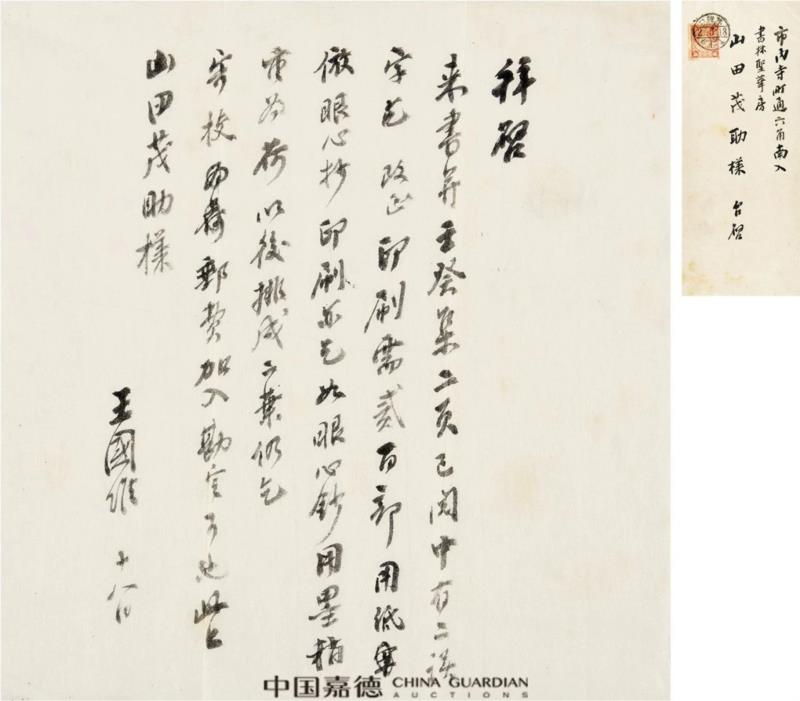 拝啓
来書并壬癸集二页已阅中有二誤
字乞改正印刷需貳百部用紙寧
倣眼心抄印刷亦乞如眼心鈔用墨稍
重為荷以後排成二葉仍乞
寄校為荷郵費加入勘定可也此上
山田茂助様
王國維
市内寺町通六角南入
書林聖華房
山田茂助様 台啓
中国嘉德 CHINA GUARDIAN
AUCTIONS